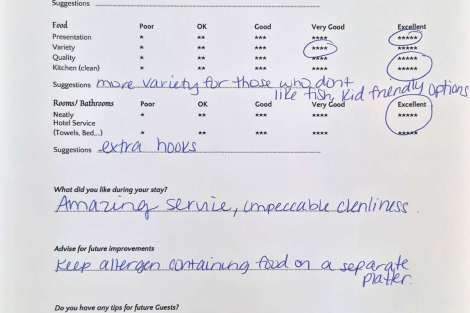 Suggestions
Food Poor OK Good Very Good Excellent
Presentation * ** *** **** *****
Variety * ** *** **** *****
Quality * ** *** **** *****
Kitchen (clean) * ** *** **** *****
Suggestions more variety for those who dont
like fish, kid friendly options
Rooms/ Bathrooms Poor OK Good Very Good Excellent
Neatly * ** *** **** *****
Hotel Service
(Towels, Bed...) * ** *** **** *****
Suggestions extra hooks
What did you like during your stay?
Amazing service, impeccable clenliness.
Advise for future improvements
Keep allergen containing food on a separate
platter.
Do you have any tips for future Guests?